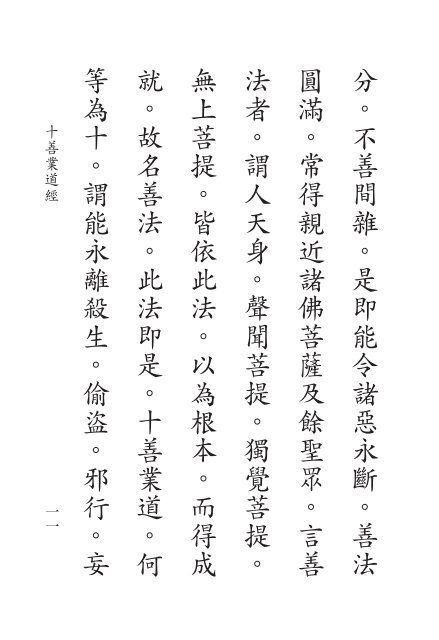 分。不善間雜。是即能令諸惡永斷。善法
圓滿。常得親近諸佛菩薩及餘聖眾。言善
法者。謂人天身。聲聞菩提。獨覺菩提。
無上菩提。皆依此法。以為根本。而得成
就。故名善法。此法即是。十善業道。何
等為十。謂能永離殺生。偷盜。邪行。妄
十善業道經
一一